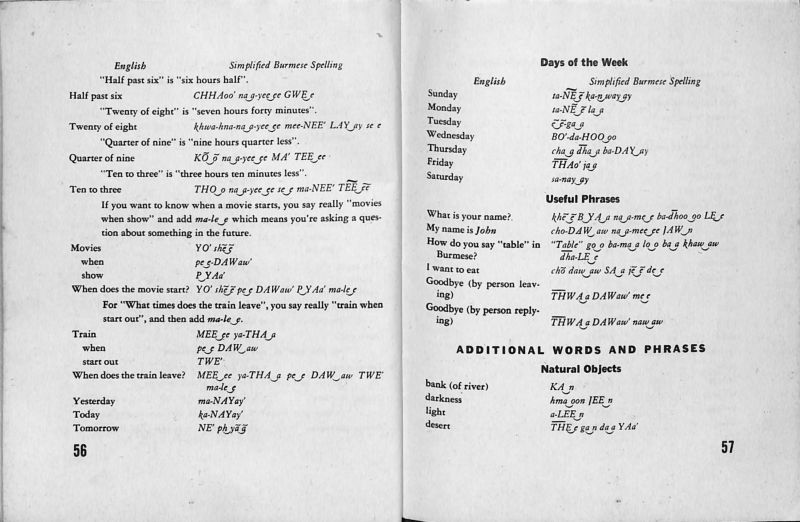 English Simplified Burmese Spelling
"Half past six" is "six hours half".
Half past six CHHAoo' na͜a-yee͜ee GWE͜e
"Twenty of eight" is "seven hours forty minutes".
Twenty of eight khwa-hna-na͜a-yee͜ee mee-NEE' LAY͜ay se e
"Quarter of nine" is "nine hours quarter less".
Quarter of nine KÕ͜õ na͜a-yee͜ee MA' TEE͜ee
"Ten to three" is "three hours ten minutes less".
Ten to three THO͜o na͜a-yee͜ee se͜e ma-NEE' TEE͜ee
If you want to know when a movie starts, you say really "movies
when show" and add ma-le͜e which means you're asking a ques-
tion about something in the future.
Movies YO' shẽ͜ẽ
when pe͜e-DAWaw'
show P͜YAa'
When does the movie start? YO' shẽ͜ẽ pe͜e DAWaw' P͜YAa' ma-le͜e
For "What times does the train leave", you say really "train when
start out", and then add ma-le͜e.
Train MEE͜ee ya-THA͜a
when pe͜e DAW͜aw
start out TWE'
When does the train leave? MEE͜ee ya-THA͜a pe͜e DAW͜aw TWE'
ma-le͜e
Yesterday ma-NAYay'
Today ka-NAYay'
Tomorrow NE' ph͜yã͜ã
56
Days of the Week
English Simplified Burmese Spelling
Sunday ta-NE͜e ka-n͜way͜ay
Monday ta-NE͜e la͜a
Tuesday
Wednesday BO'-da-HOO͜oo
Thursday cha͜a dha͜a ba-DAY͜ay
Friday THAo' ja͜a
Saturday sa-nay͜ay
Useful Phrases
What is your name? khẽ͜ẽ B͜YA͜a na͜a-me͜e ba-dhoo͜oo LE͜e
My name is John cho-DAW͜aw na͜a-mee͜ee JAW͜n
How do you say "table" in "Table" go͜o ba-ma͜a lo͜o ba͜a khaw͜aw
Burmese? dha-LE͜e
I want to eat chõ daw͜aw SA͜a jẽ͜ẽ de͜e
Goodbye (by person leav-
ing) THWA͜a DAWaw' me͜e
Goodbye (by person reply-
ing) THWA͜a DAWaw' naw͜aw
ADDITIONAL WORDS AND PHRASES
Natural Objects
bank (of river) KA͜n
darkness hma͜oon JEE͜n
light a-LEE͜n
desert THE͜e ga͜n da͜a YAa'
57